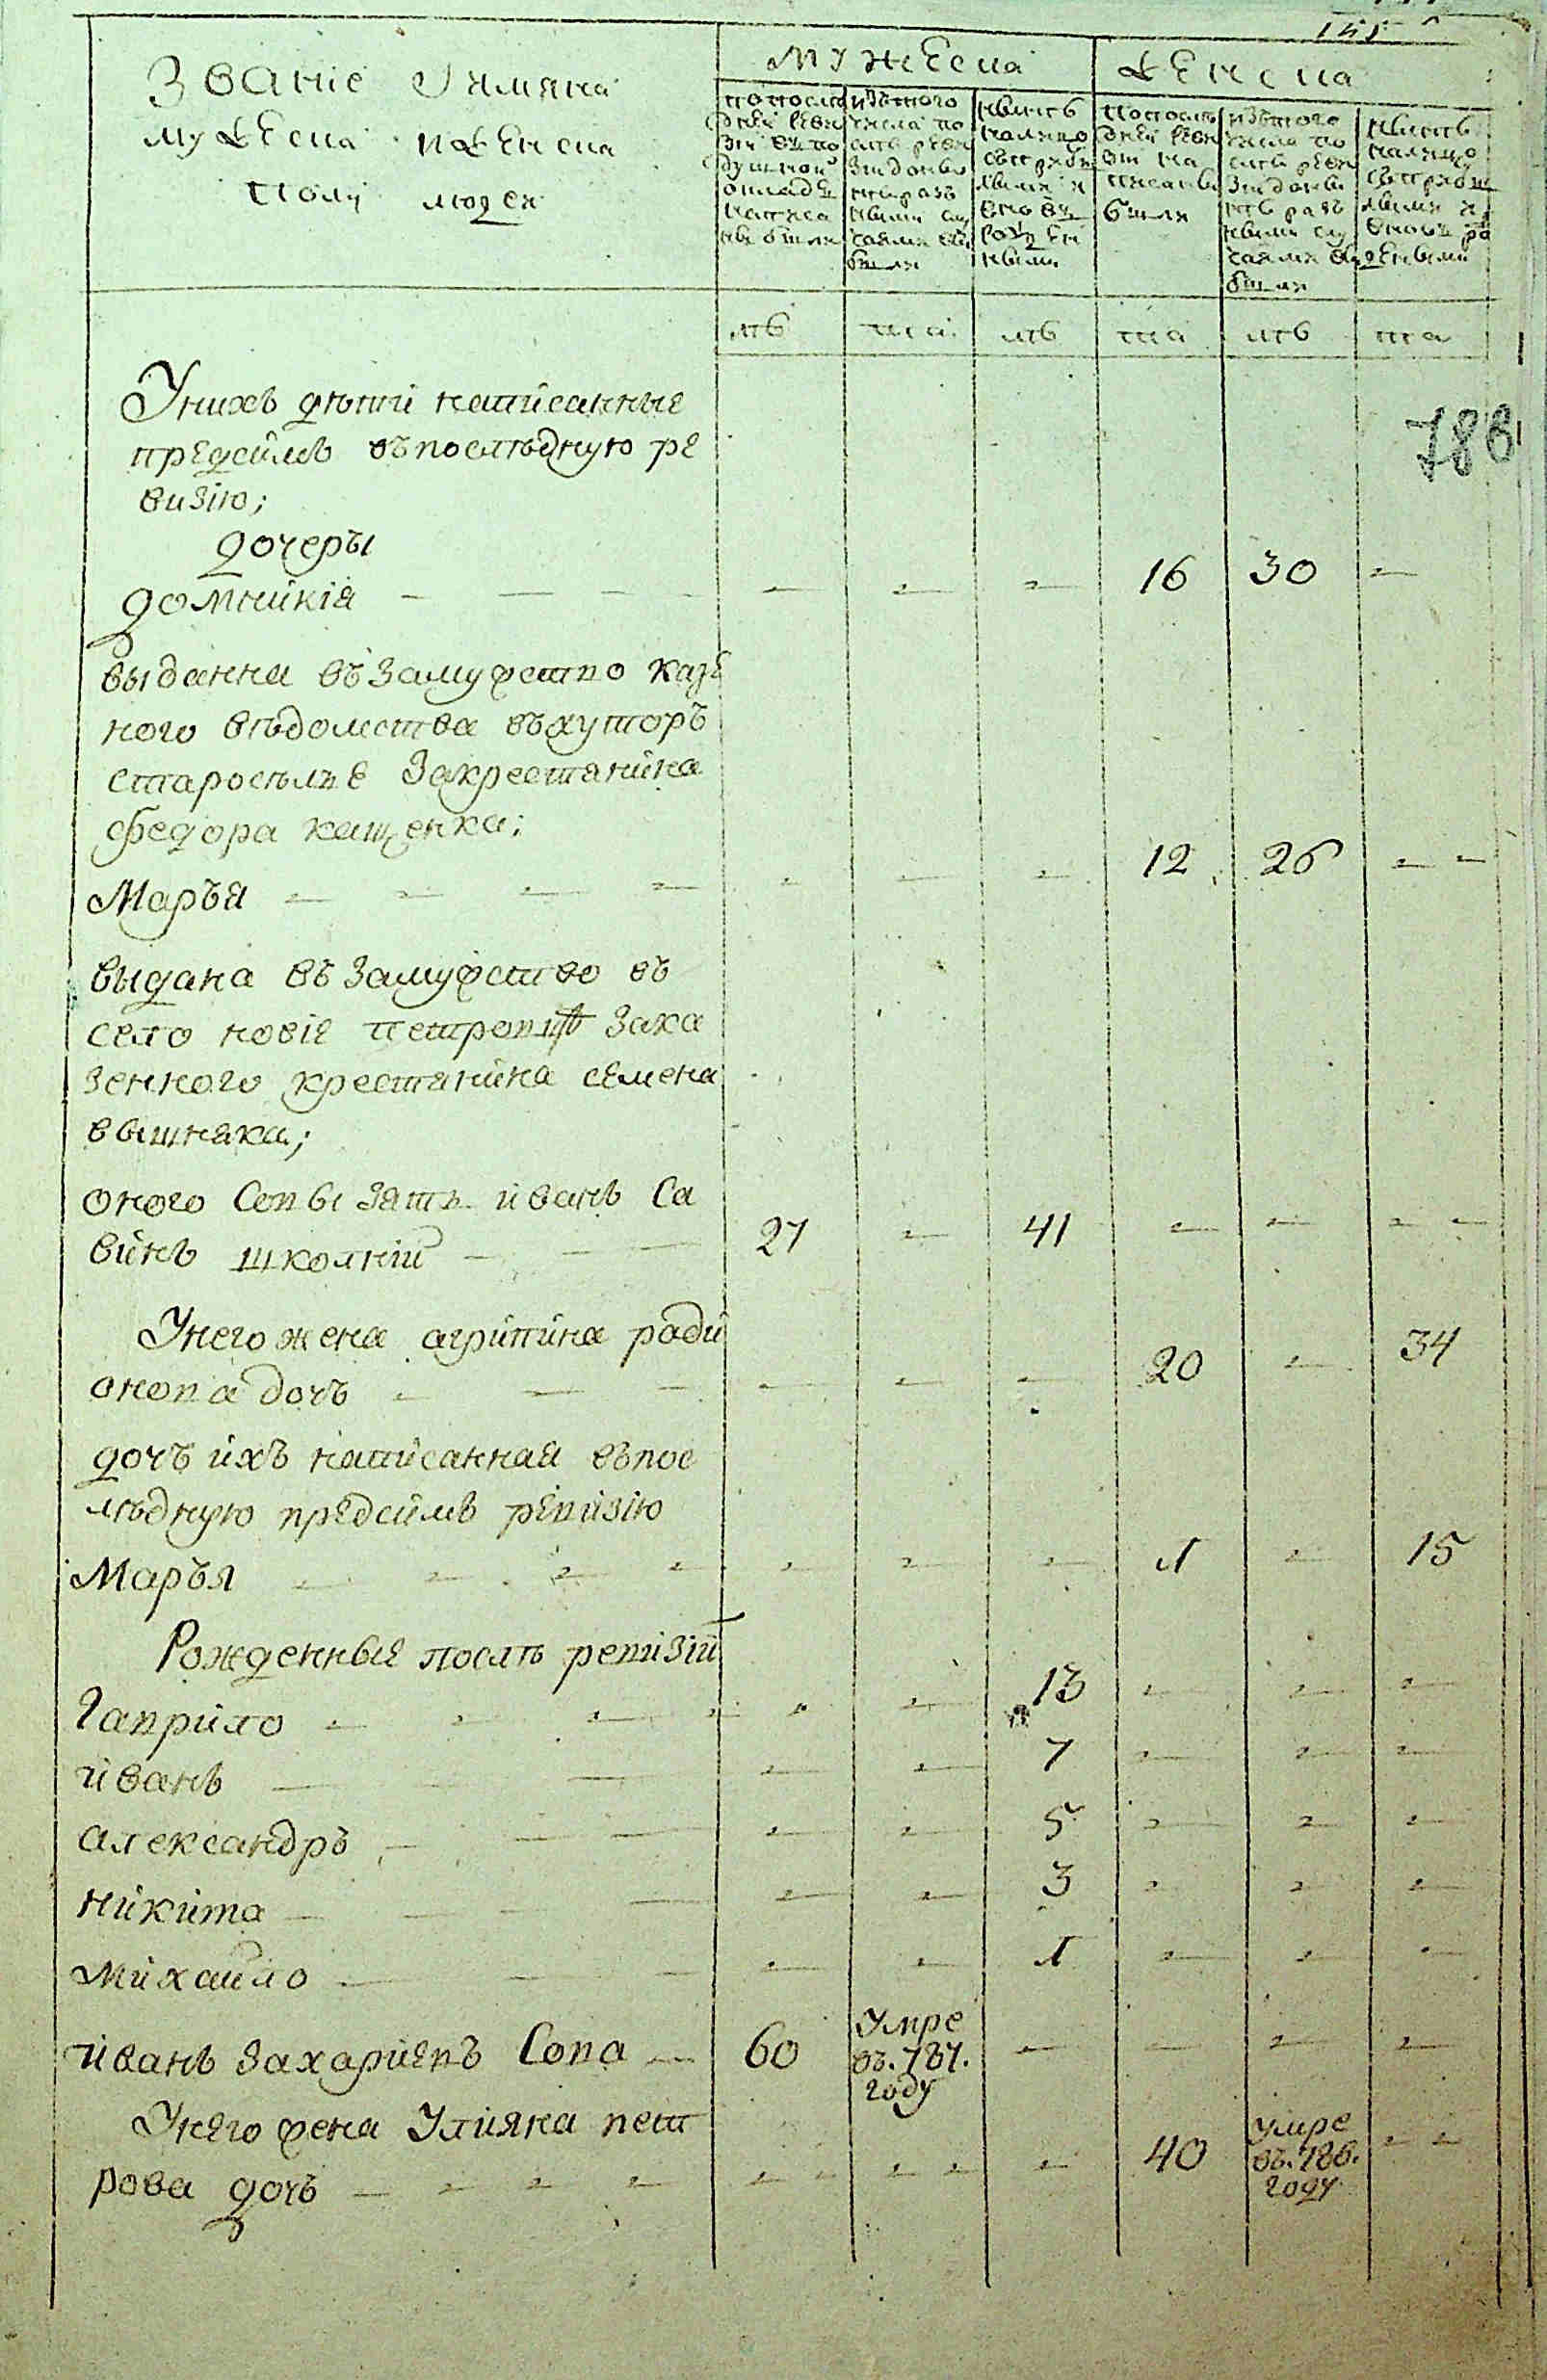 145
Званіе Иимяна
мужеска иженска
полу людей
мужеска
женска
попосле
дней реви
зіи въпо
душной
окладъ
написа
ны были
изътого
числа по
слѣ реви
зіи довы
нѣ разъ
ными слу
чаями вы
были
нынѣ
налицо
съприбы
лыми и
вновь
рожден
ными
попослѣ
дней реви
зіи на
писаны
были
изътого
числа по
слѣ реви
зіи довы
нѣ разъ
ными слу
чаями вы
были
нынѣ
налицо
съприбы
лыми и
вновь ро
жденными
лѣ та лѣ та лѣ та
Унихъ дѣтй написанные
предсимъ въпослѣдную ре
визію;
788
дочеры
домникія — — — — — — — 16 30 —
выданна въ замужство казе
ного вѣдомства въхуторъ
старосѣлье закрестянина
федора кащенка;
Маръя — — — — — — — 12 26 — —
выдана въ замужство въ
село новіе петровцѣ зака
зенного крестянина семена
вышняка;
оного Совы зять иванъ Са
винъ школній — — — 27 — 41 — — — —
Унего жена агрипина ради
онова дочъ — — — — — — 20 — 34
дочъ ихъ написанная въпос
лѣдную предсимъ ревизію
Маръя — — — — — — — 1 — 15
Рожденные послѣ ревизіи
Гаврило — — — — — — 13 — — —
иванъ — — — — — 7 — — —
александръ — — — — — 5 — — —
никита — — — — — — 3 — — —
михайло — — — — — 1 — — —
иванъ захаріевъ Сова — 60 умре въ.787. году — — — —
Унего жена Улияна пет
рова дочъ — — — — — — — — — — 40 умре въ.786. году — —